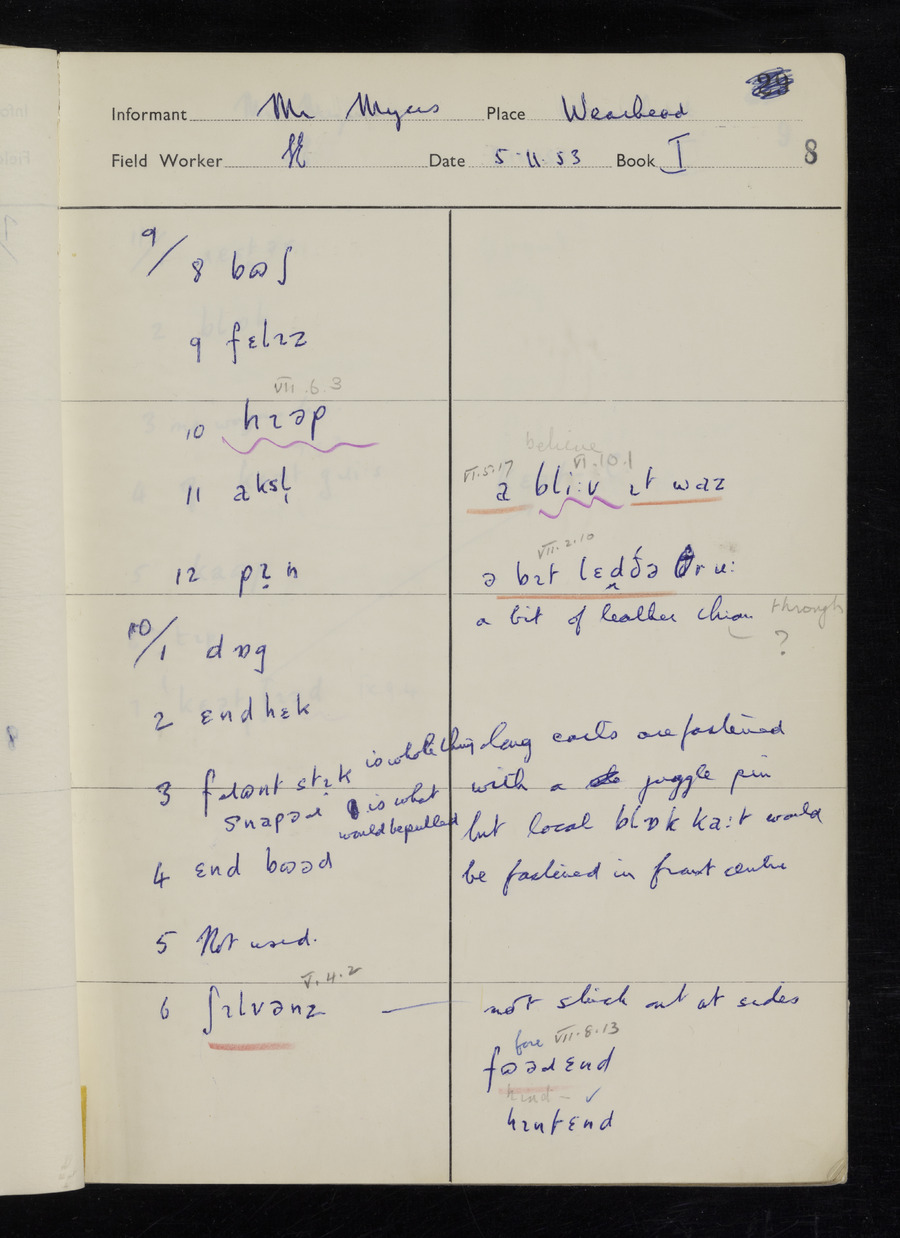 Informant Mr Myers Place Wearhead
Field Worker Date 5·11·53 Book I 8
9/8 bɷʃ
9 fɛlɪz
VII.6.3
10 hɪəp
11 aksl̩
12 pɪ̣n
10/1 dɒg
2 ɛndhɛk
3 stɪ̣k is whole thing
is what
would be pulled
4 ɛnd bɷəd
5 Not used.
V.4.2
6 ʃɪlvənz
believe
VI.5.17 VI.10.1
a bli:v ɪt waz
VII.2.10
ə bɪt lɛdðə θru:
a bit of leather through
?
long carts are fastened
with a juggle pin
but local blɒk ka:t would
be fastened in front centre
not stick out at sides
fore VII.8.13
fɷəɹɛnd
hind – ✓
hɪntɛnd